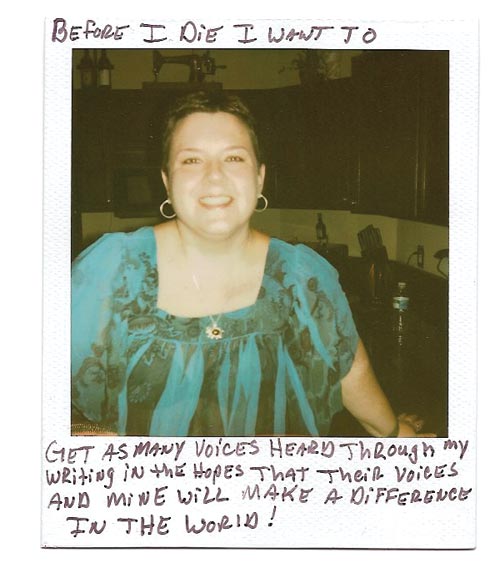 BEFORE I DIE I WANT TO
GET AS MANY VOICES HEARD THROUGH my
WRITING IN THE HOPES THAT THEIR VOICES
AND MINE WILL MAKE A DIFFERENCE
IN THE WORLD!